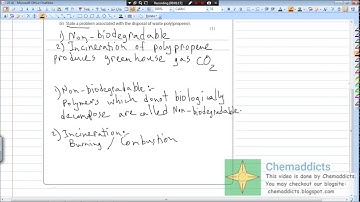 (ii) State a problem associated with the disposal of waste poly(propene).
1) Non-biodegradable
2) Incineration of polypropene
produces greenhouse gas CO2
1) Non-biodegradable:-
Polymers which donot biologically
decompose are called Non-biodegradable.
2) Incineration:-
Burning / Combustion
Chemaddicts
This video is done by Chemaddicts
You may checkout our blogsite:
chemaddicts.blogspot.com